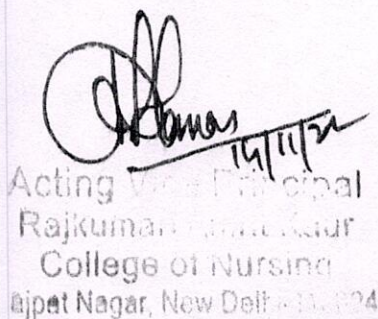 14/11/22
Acting Vice Principal
Rajkumari Amrit Kaur
College of Nursing
ajpat Nagar, New Delhi-110024